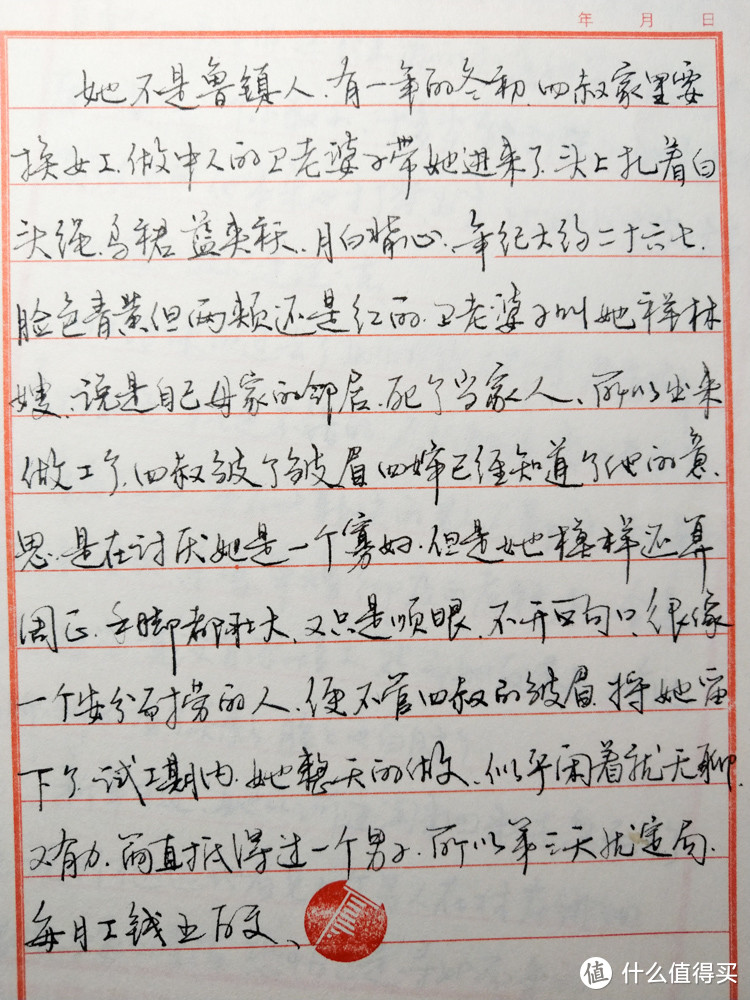 年 月 日
她不是鲁镇人.有一年的冬初.四叔家里要
换女工.做中人的卫老婆子带她进来了.头上扎着白
头绳.乌裙.蓝夹袄.月白背心.年纪大约二十六七.
脸色青黄但两颊还是红的.卫老婆子叫她祥林
嫂.说是自己母家的邻居.死了当家人、所以出来
做工了.四叔皱了皱眉四婶已经知道了他的意
思.是在讨厌她是一个寡妇.但是她模样还算
周正.手脚都壮大.又只是顺眼.不开口.很像
一个安分耐劳的人.便不管四叔的皱眉.将她留
下了.试工期内.她整天的做.似乎闲着就无聊.
又有力.简直抵得过一个男子.所以第三天就定局.
每月工钱五百文、
值 什么值得买